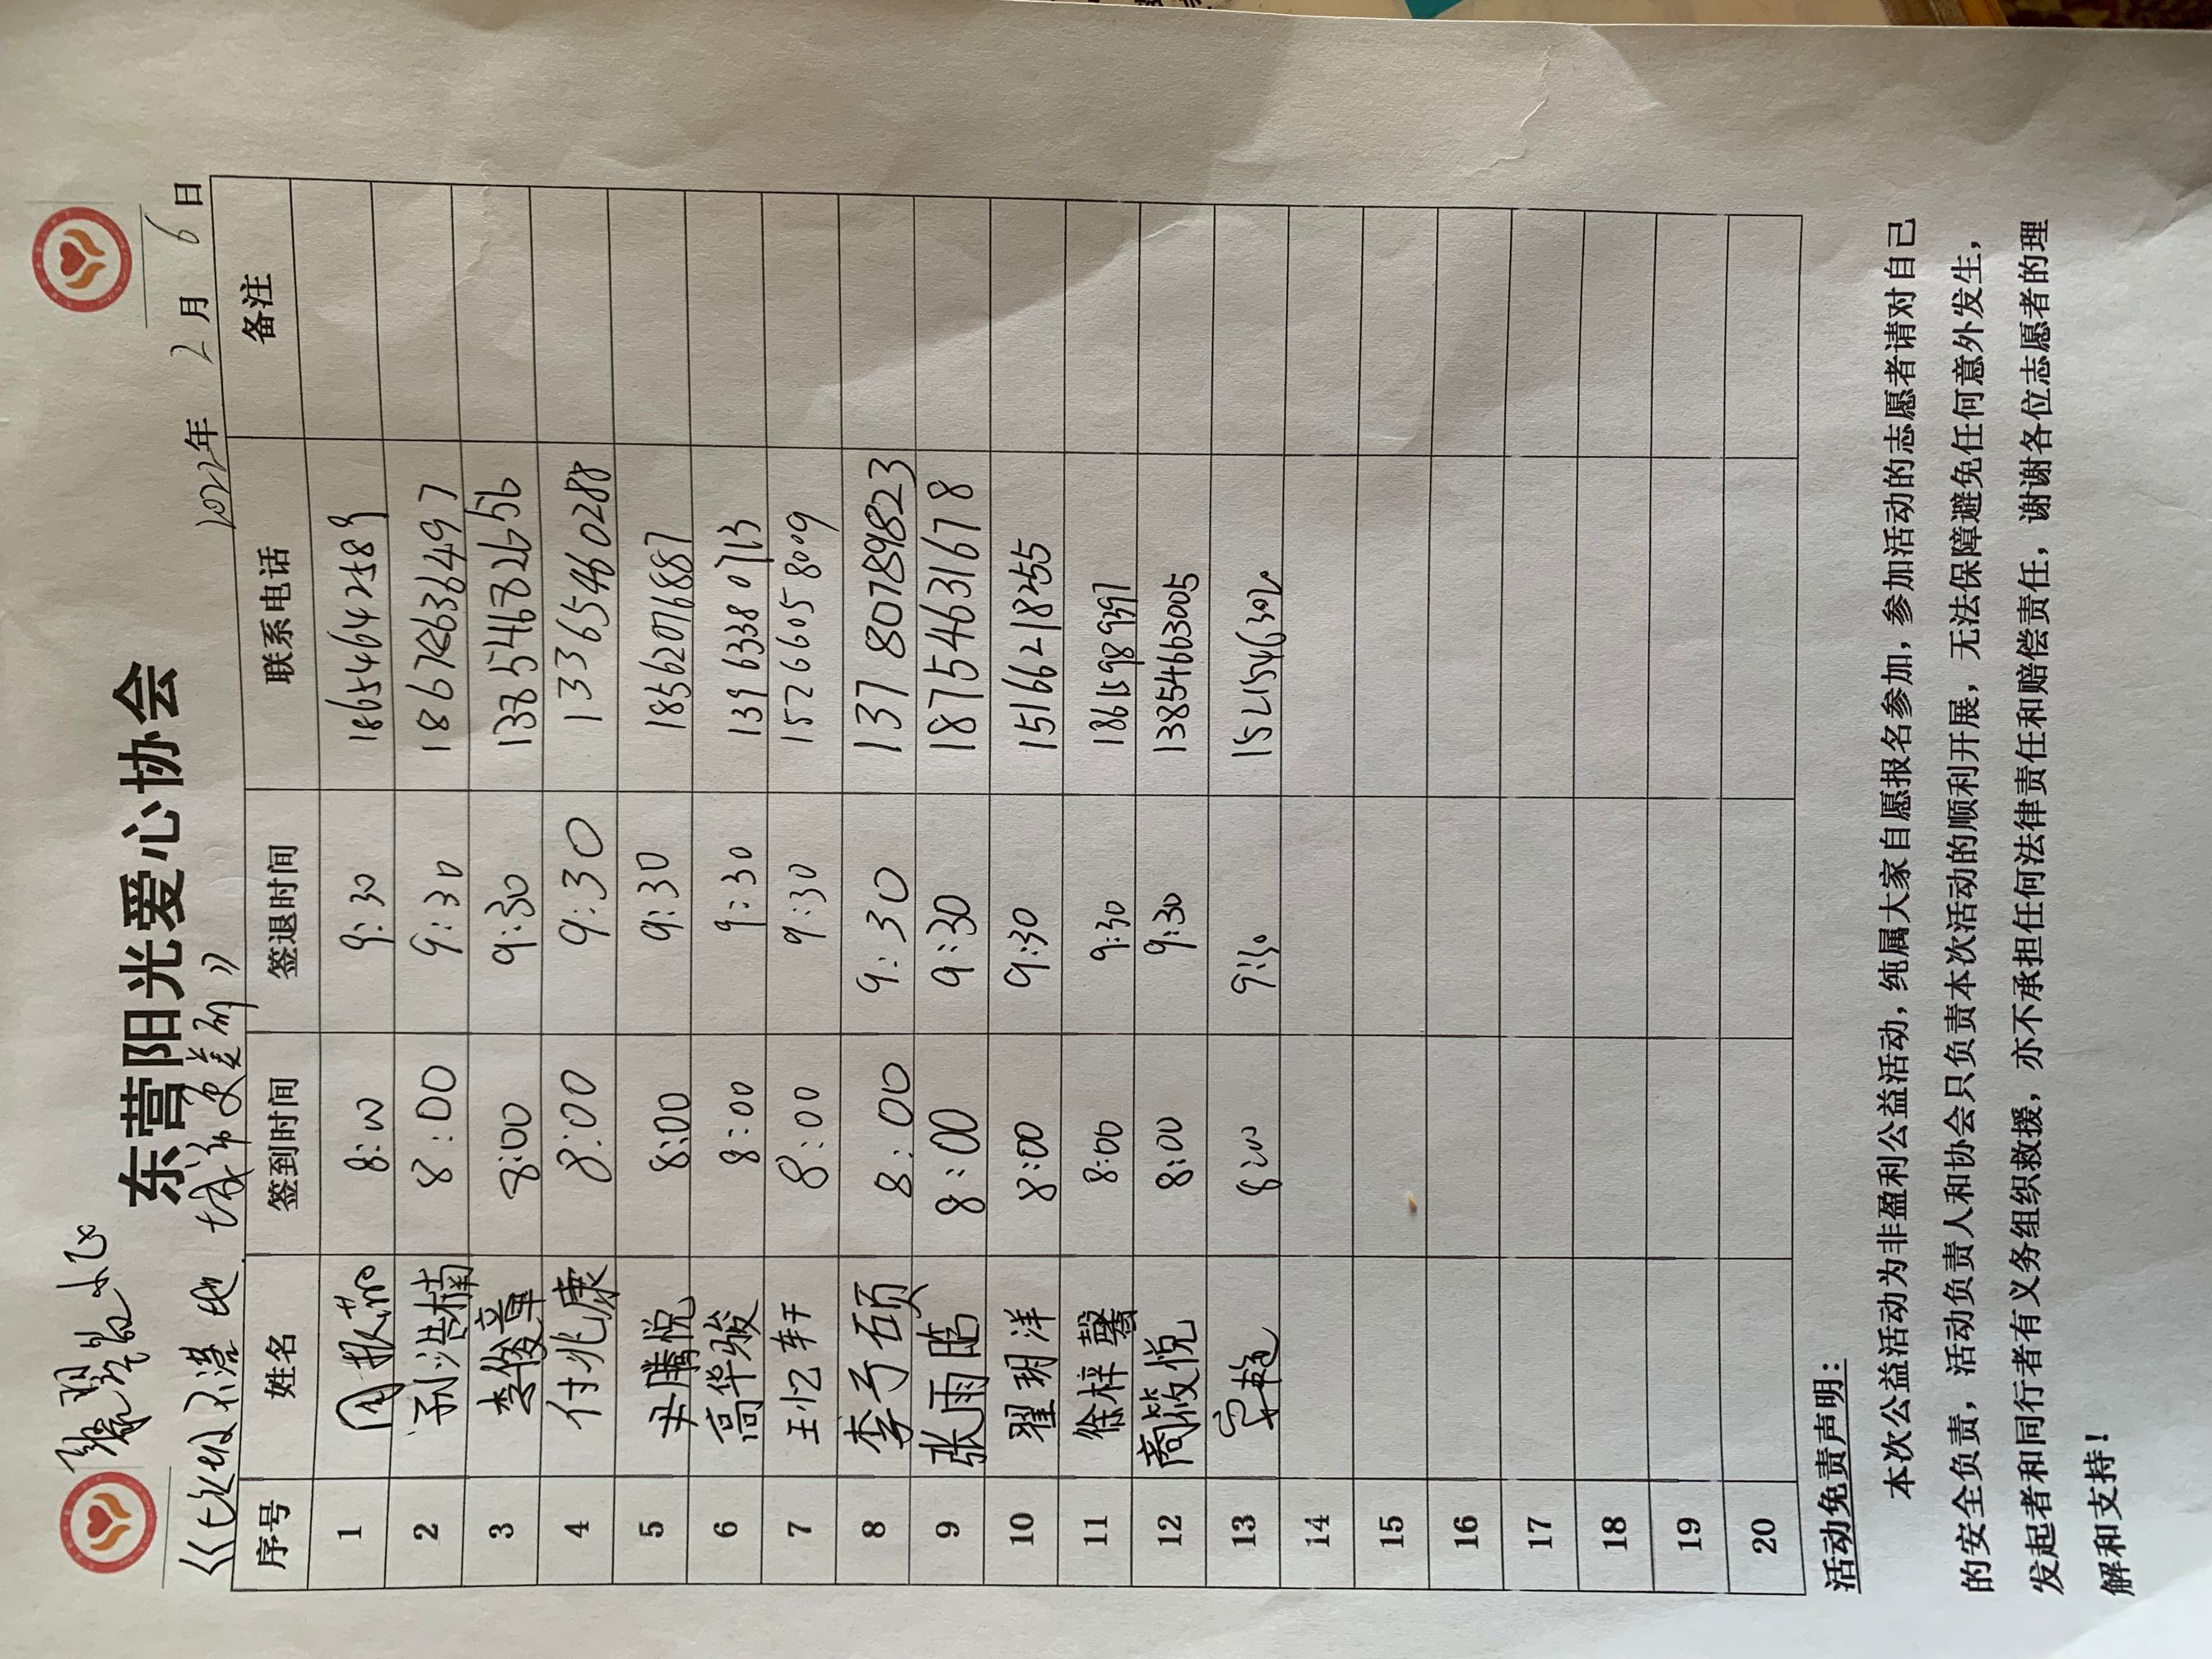 东营阳光爱心协会
《垃圾不落地 城市更美丽》 2022年 2月 6日
序号 姓名 签到时间 签退时间 联系电话 备注
1 8:00 9:30 18654642589
2 孙洪楠 8:00 9:30
3 李俊章 8:00 9:30
4 付兆康 8:00 9:30 13365460288
5 尹腾悦 8:00 9:30 18562076887
6 高华骏 8:00 9:30 13963380713
7 王忆轩 8:00 9:30 15266058009
8 李亏硕 8:00 9:30
9 张雨 8:00 9:30 18754631678
10 翟玥洋 8:00 9:30 15166218255
11 徐梓馨 8:00 9:30 18615989397
12 商筱悦 8:00 9:30 13854663005
13 8:00 9:30
14
15
16
17
18
19
20
活动免责声明：
本次公益活动为非盈利公益活动，纯属大家自愿报名参加，参加活动的志愿者请对自己
的安全负责，活动负责人和协会只负责本次活动的顺利开展，无法保障避免任何意外发生，
发起者和同行者有义务组织救援，亦不承担任何法律责任和赔偿责任，谢谢各位志愿者的理
解和支持！